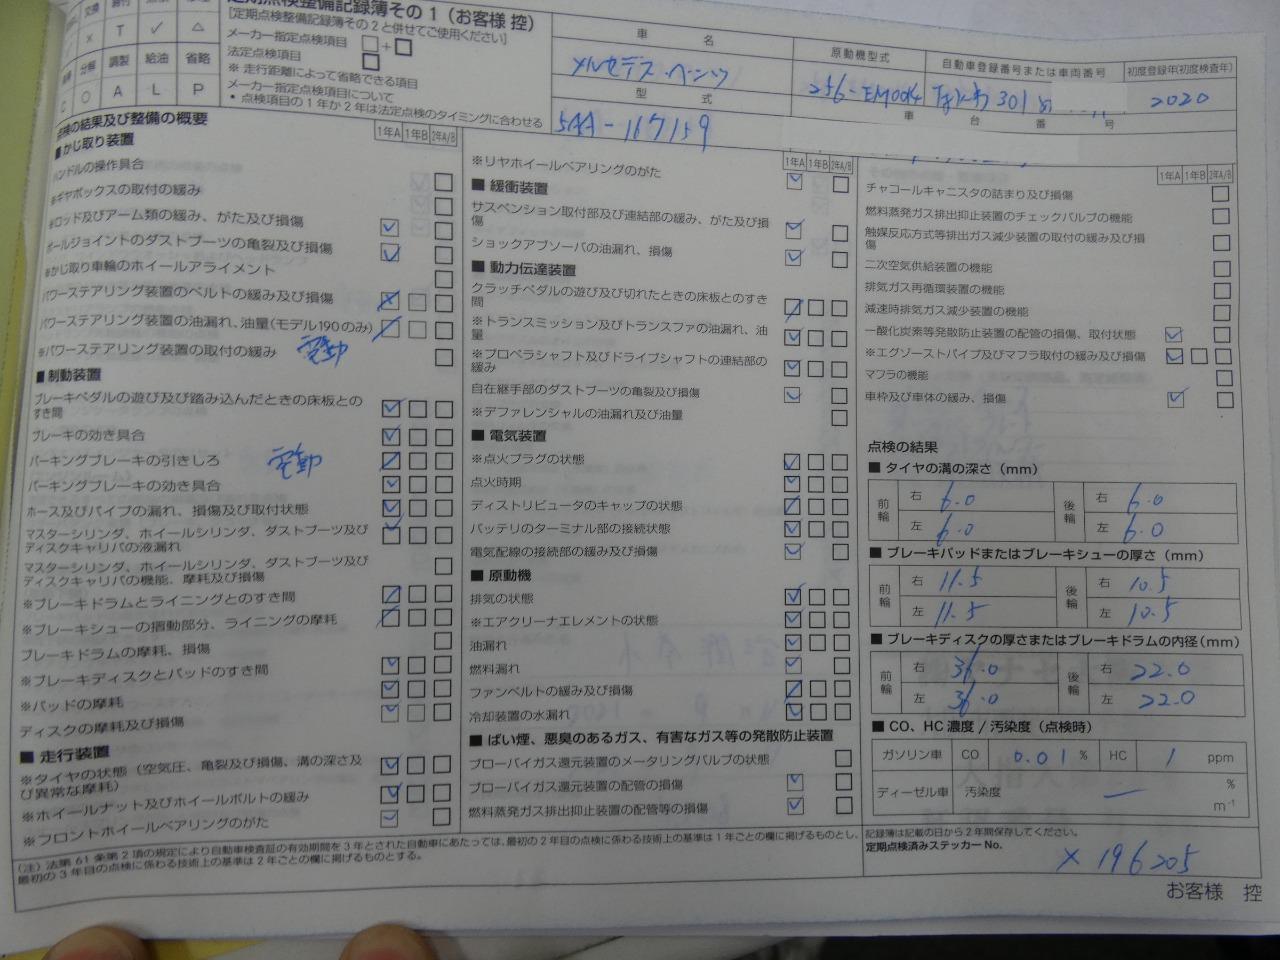 定期点検整備記録簿その1（お客様 控）
[定期点検整備記録簿その2と併せてご使用ください]
メーカー指定点検項目 □+□
法定点検項目 □
※ 走行距離によって省略できる項目
メーカー指定点検項目について
• 点検項目の1年か2年は法定点検のタイミングに合わせる
交換 × T ✓ △
分解 調製 給油 省略
C ○ A L P
車 名
メルセデス・ベンツ
型 式
5AA-167159
原動機型式
256-EM0014
自動車登録番号または車両番号
なにわ 301
初度登録年(初度検査年)
2020
車 台 番 号
点検の結果及び整備の概要
1年A 1年B 2年A/B
■ かじ取り装置
ハンドルの操作具合
※ギヤボックスの取付の緩み
※ロッド及びアーム類の緩み、がた及び損傷
ボールジョイントのダストブーツの亀裂及び損傷
※かじ取り車輪のホイールアライメント
パワーステアリング装置のベルトの緩み及び損傷
パワーステアリング装置の油漏れ、油量(モデル190のみ)
※パワーステアリング装置の取付の緩み 電動
■ 制動装置
ブレーキペダルの遊び及び踏み込んだときの床板との
すき間
ブレーキの効き具合
パーキングブレーキの引きしろ 電動
パーキングブレーキの効き具合
ホース及びパイプの漏れ、損傷及び取付状態
マスターシリンダ、ホイールシリンダ、ダストブーツ及び
ディスクキャリパの液漏れ
マスターシリンダ、ホイールシリンダ、ダストブーツ及び
ディスクキャリパの機能、摩耗及び損傷
※ブレーキドラムとライニングとのすき間
※ブレーキシューの摺動部分、ライニングの摩耗
ブレーキドラムの摩耗、損傷
※ブレーキディスクとパッドのすき間
※パッドの摩耗
ディスクの摩耗及び損傷
■ 走行装置
※タイヤの状態（空気圧、亀裂及び損傷、溝の深さ及
び異常な摩耗）
※ホイールナット及びホイールボルトの緩み
※フロントホイールベアリングのがた
1年A 1年B 2年A/B
※リヤホイールベアリングのがた
■ 緩衝装置
サスペンション取付部及び連結部の緩み、がた及び損
傷
ショックアブソーバの油漏れ、損傷
■ 動力伝達装置
クラッチペダルの遊び及び切れたときの床板とのすき
間
※トランスミッション及びトランスファの油漏れ、油
量
※プロペラシャフト及びドライブシャフトの連結部の
緩み
自在継手部のダストブーツの亀裂及び損傷
※デファレンシャルの油漏れ及び油量
■ 電気装置
※点火プラグの状態
点火時期
ディストリビュータのキャップの状態
バッテリのターミナル部の接続状態
電気配線の接続部の緩み及び損傷
■ 原動機
排気の状態
※エアクリーナエレメントの状態
油漏れ
燃料漏れ
ファンベルトの緩み及び損傷
冷却装置の水漏れ
■ ばい煙、悪臭のあるガス、有害なガス等の発散防止装置
ブローバイガス還元装置のメータリングバルブの状態
ブローバイガス還元装置の配管の損傷
燃料蒸発ガス排出抑止装置の配管等の損傷
1年A 1年B 2年A/B
チャコールキャニスタの詰まり及び損傷
燃料蒸発ガス排出抑止装置のチェックバルブの機能
触媒反応方式等排出ガス減少装置の取付の緩み及び損
傷
二次空気供給装置の機能
排気ガス再循環装置の機能
減速時排気ガス減少装置の機能
一酸化炭素等発散防止装置の配管の損傷、取付状態
※エグゾーストパイプ及びマフラ取付の緩み及び損傷
マフラの機能
車枠及び車体の緩み、損傷
点検の結果
■ タイヤの溝の深さ（mm）
前輪 右 6.0 後輪 右 6.0
左 6.0 左 6.0
■ ブレーキパッドまたはブレーキシューの厚さ（mm）
前輪 右 11.5 後輪 右 10.5
左 11.5 左 10.5
■ ブレーキディスクの厚さまたはブレーキドラムの内径(mm)
前輪 右 36.0 後輪 右 22.0
左 36.0 左 22.0
■ CO、HC 濃度 / 汚染度（点検時）
ガソリン車 CO 0.01 % HC 1 ppm
ディーゼル車 汚染度 — % m⁻¹
（注）法第61条第2項の規定により自動車検査証の有効期間を3年とされた自動車にあたっては、最初の2年目の点検に係わる技術上の基準は1年ごとの欄に掲げるものとし、
最初の3年目の点検に係わる技術上の基準は2年ごとの欄に掲げるものとする。
記録簿は記載の日から2年間保存してください。
定期点検済みステッカー No.
X 196205
お客様 控